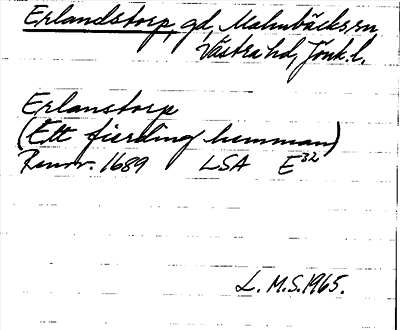 Erlandstorp, gd, Malmbäcks sn
Västra hd, Jönk. l.
Erlanstorp
(Ett fierding hemman)
Renov. 1689 LSA E32
L. M.S. 1965.